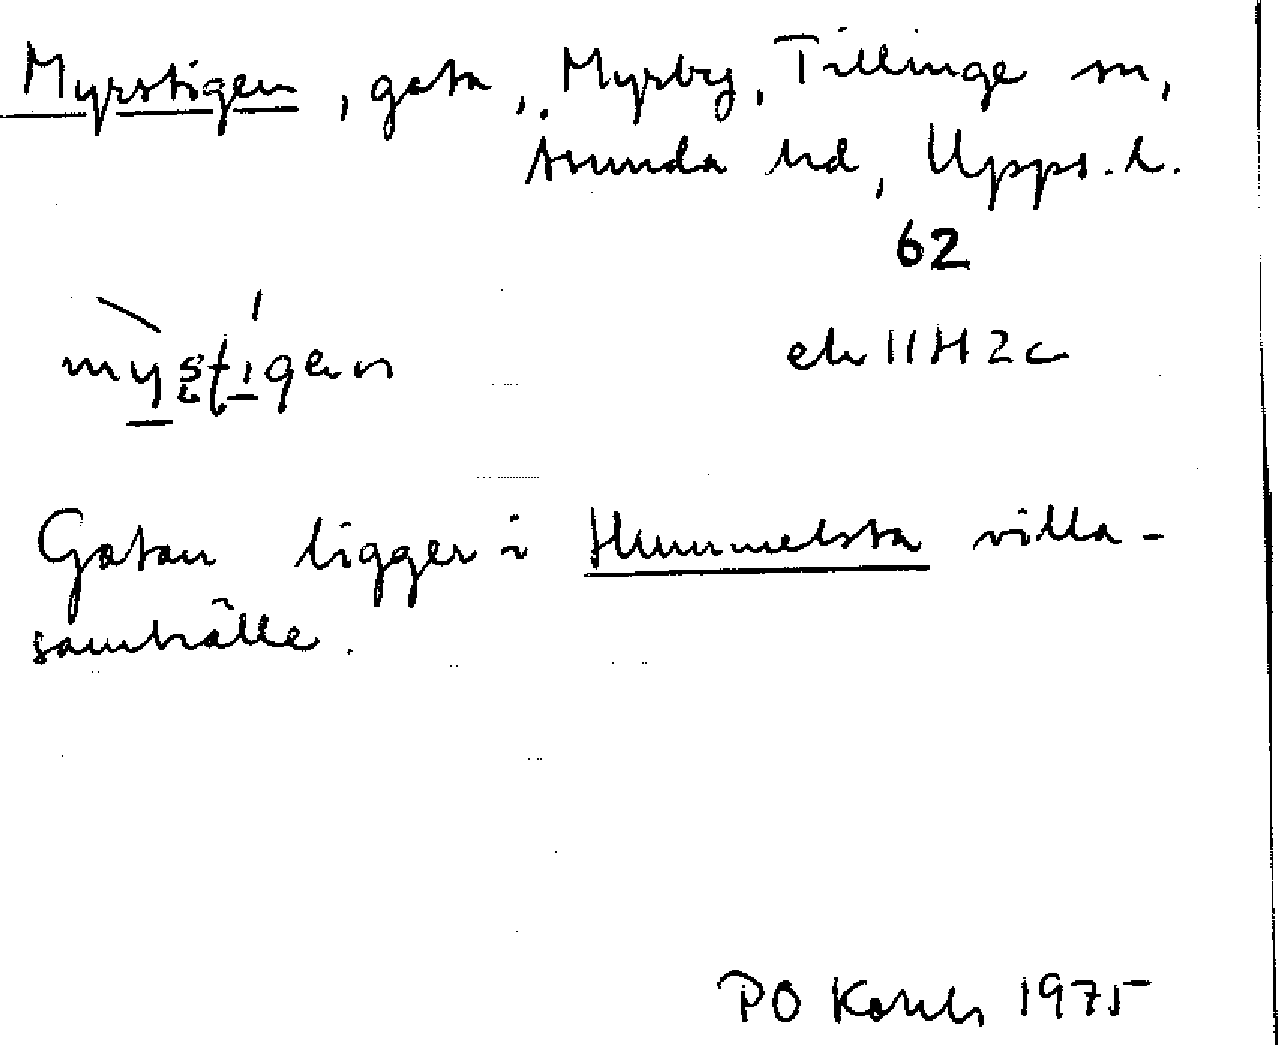 Myrstigen, gata, Myrby, Tillinge sn,
Åsunda hd, Upps. l.
62
ek 11H2c
mystigen
Gatan ligger i Hummelsta villa-
samhälle.
PO 1975